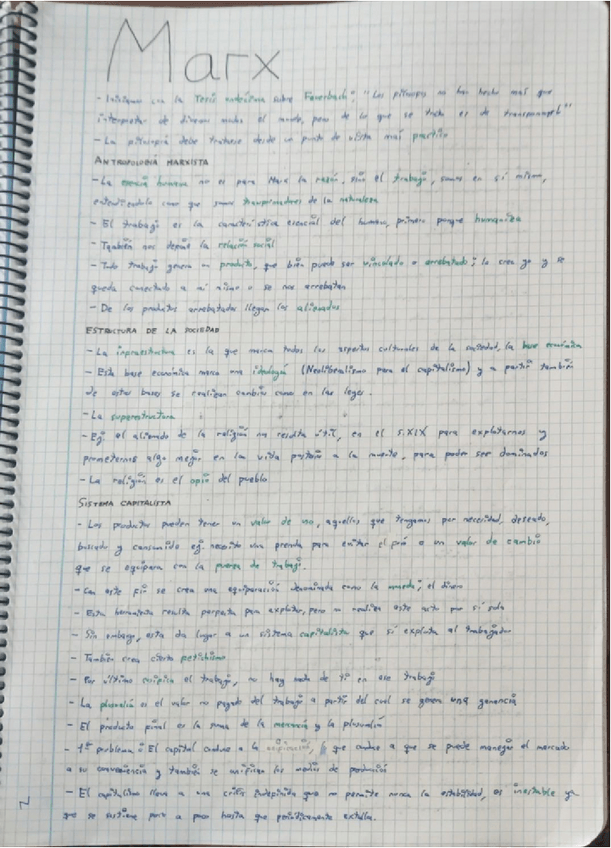 Marx
- Iniciamos con la Tesis undécima sobre Feuerbach: "Los filósofos no han hecho más que
interpretar de diversos modos el mundo, pero de lo que se trata es de transformarlo"
- La filosofía debe tratarse desde un punto de vista más práctico
ANTROPOLOGÍA MARXISTA
- La esencia humana no es para Marx la razón, sino el trabajo, somos en sí mismo,
entendiéndolo como que somos transformadores de la naturaleza
- El trabajo es la característica esencial del humano, primero porque humaniza
- También nos define la relación social
- Todo trabajo genera un producto, que bien puede ser vinculado o arrebatado; lo creo yo y se
queda conectado a mí mismo o se nos arrebatan
- De los productos arrebatados llegan los alienados
ESTRUCTURA DE LA SOCIEDAD
- La infraestructura es la que marca todos los aspectos culturales de la sociedad, la base económica
- Esta base económica marca una ideología (Neoliberalismo para el capitalismo) y a partir también
de estas bases se realizan cambios como en las leyes.
- La superestructura
- Ej. el alienado de la religión nos resulta útil, en el S.XIX para explotarnos y
prometernos algo mejor en la vida postrera a la muerte, para poder ser dominados
- La religión es el opio del pueblo
SISTEMA CAPITALISTA
- Los productos pueden tener un valor de uso, aquellos que tengamos por necesidad, deseado,
buscado y consumido ej. necesito una prenda para evitar el frío o un valor de cambio
que se equipara con la fuerza de trabajo.
- Con este fin se crea una equiparación denominada como la moneda; el dinero
- Esta herramienta resulta perfecta para explotar, pero no realiza este acto por sí sola
- Sin embargo, esta da lugar a un sistema capitalista que sí explota al trabajador
- También crea cierto fetichismo
- Por último cosifica el trabajo, no hay nada de ti en ese trabajo
- La plusvalía es el valor no pagado del trabajo a partir del cual se genera una ganancia
- El producto final es la suma de la mercancía y la plusvalía
- 1er problema: El capital conduce a la que conduce a que se puede manejar el mercado
a su conveniencia y también se unifican los medios de producción
- El capitalismo lleva a una crisis indefinida que no permite nunca la estabilidad, es inestable ya
que se sostiene poco a poco hasta que periódicamente estalla.